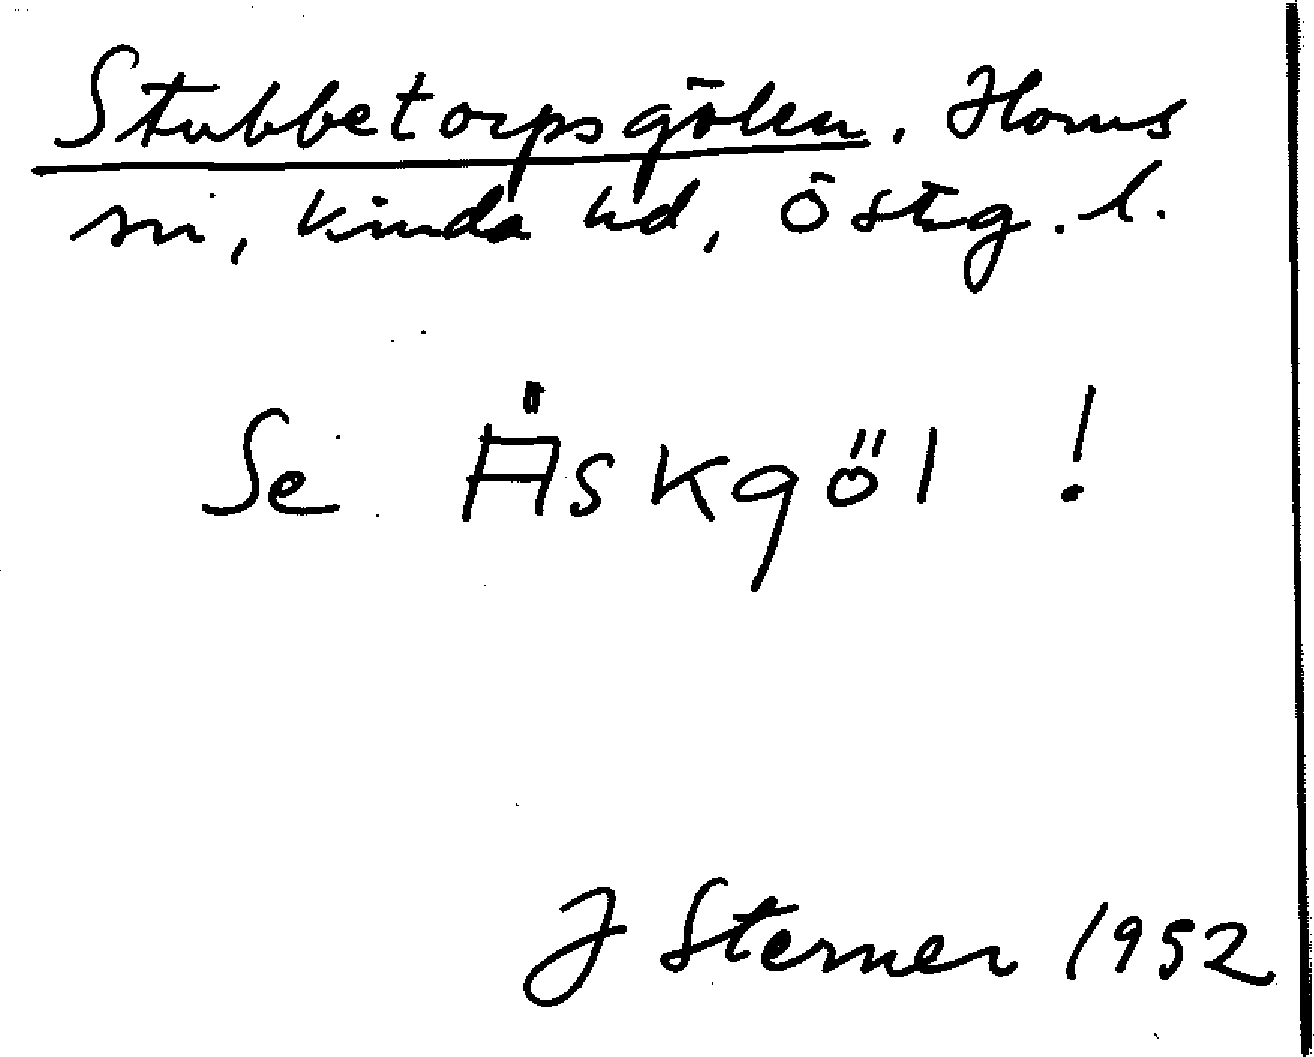 Stubbetorpsgölen. Horns
sn, Kinda hd, Östg. l.
Se Äskgöl !
J Sterner 1952